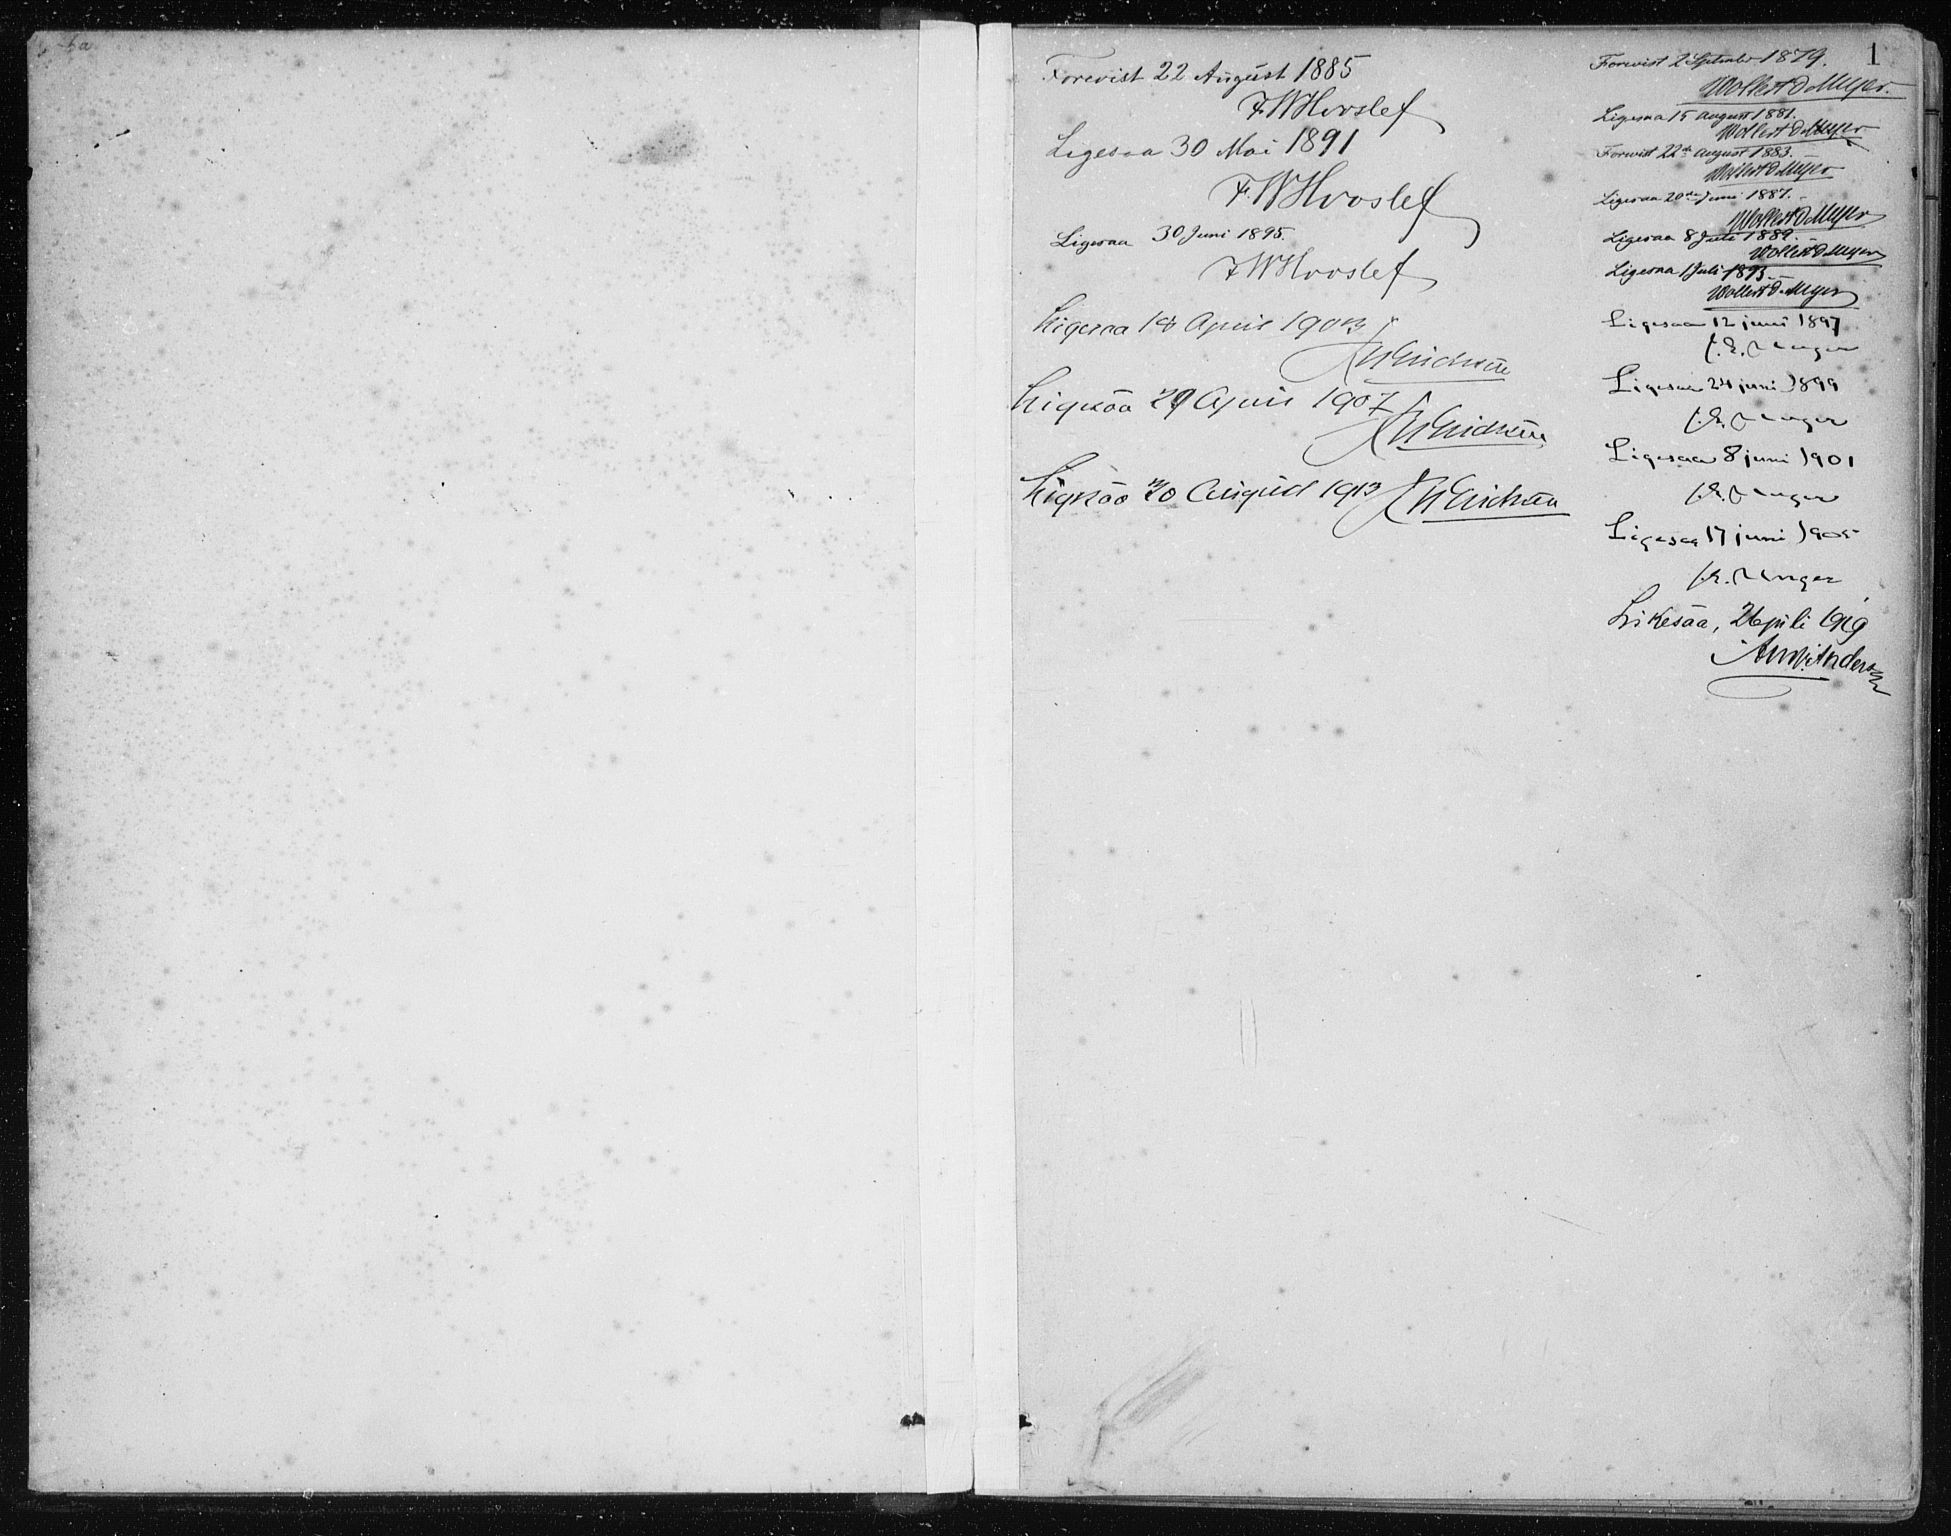 1
Forevist 22 August 1885
F. W Hvoslef
Ligesaa 30 Mai 1891
F. W Hvoslef
Ligesaa 30 Juni 1895.
F W Hvoslef
Ligesaa 18 April 1903
Ligesaa 29 April 1907
Ligesaa 30 August 1913
Forevist 2 September 1879.
Wollert D Meyer.
Ligesaa 15 August 1881.
Wollert D Meyer
Forevist 22de August 1883.
Wollert D Meyer
Ligesaa 20de Juni 1887.
Wollert D Meyer
Ligesaa 8 Juli 1889.
Wollert D Meyer
Ligesaa 1 Juli 1893
Wollert D Meyer
Ligesaa 12 juni 1897
Unger
Ligesaa 24 juni 1899
Unger
Ligesaa 8 juni 1901
Unger
Ligesaa 17 juni 1905
Unger
Likesaa, 1919